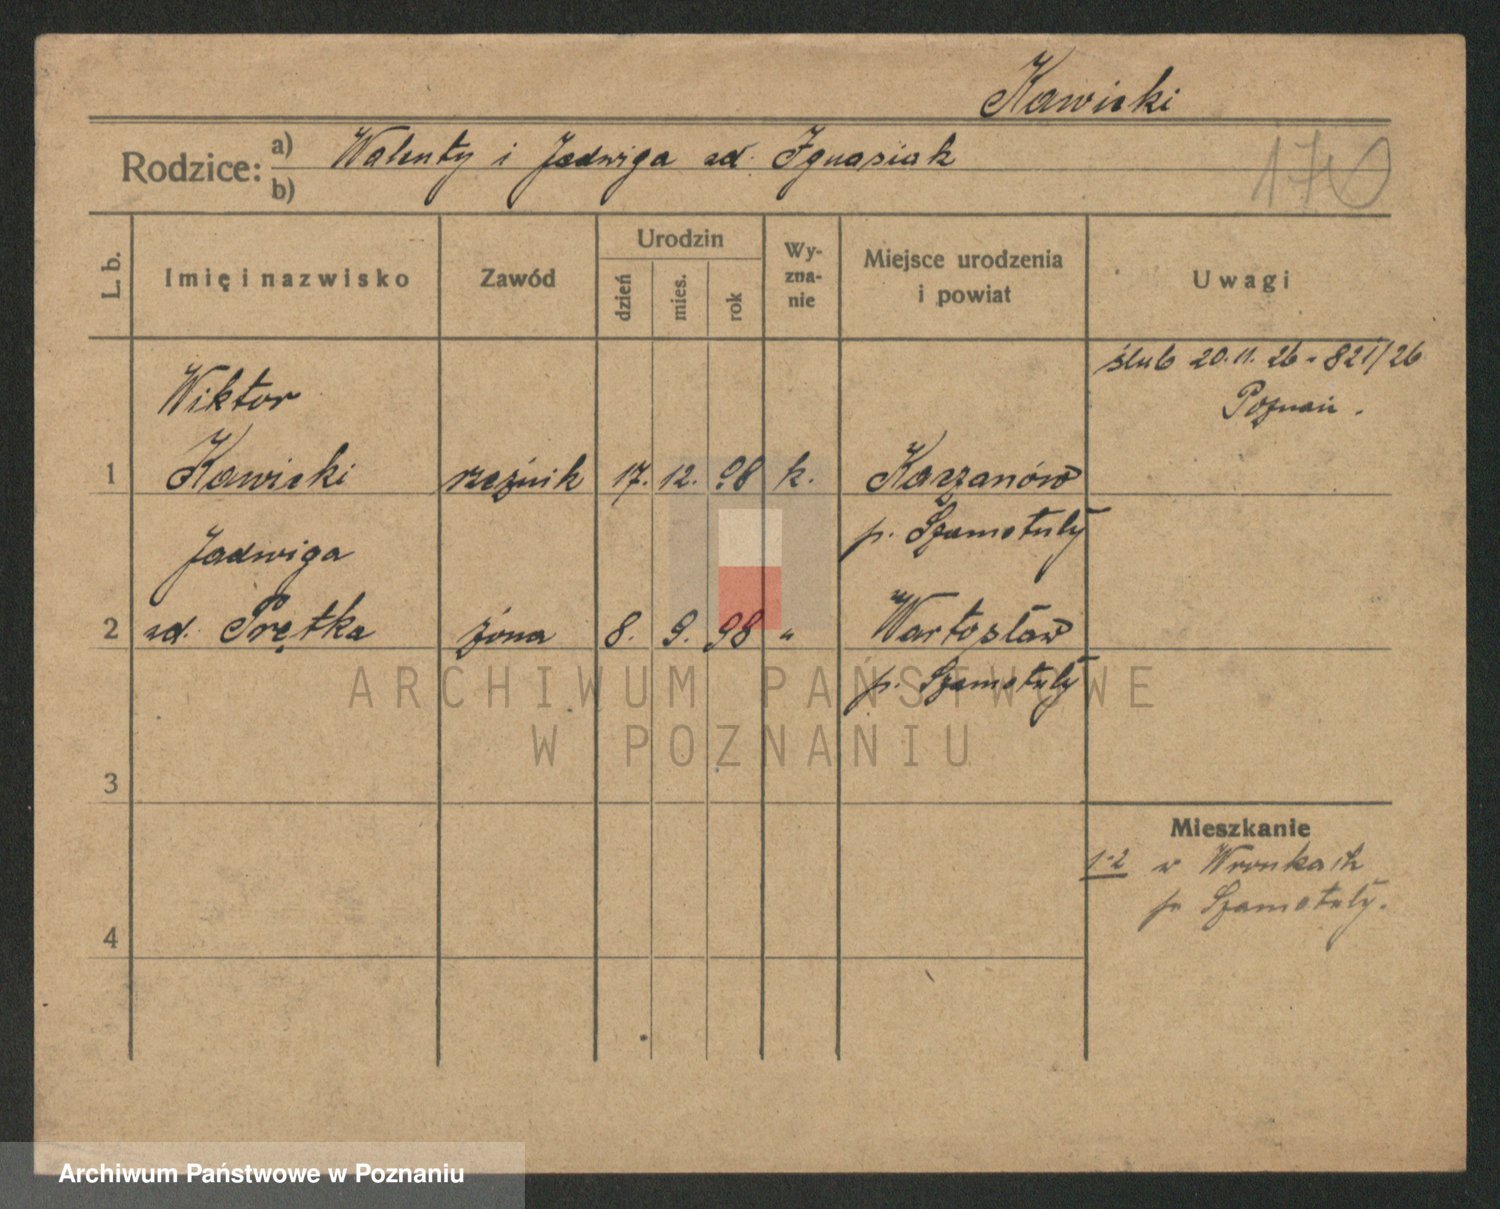 Kawicki
Rodzice: a) Walenty i Jadwiga zd. Ignasiak
b)
170
L. b.
Imię i nazwisko
Zawód
Urodzin
dzień
mies.
rok
Wy-
zna-
nie
Miejsce urodzenia
i powiat
Uwagi
ślub 20.11.26 - 821/26
Poznań.
Wiktor
1 Kawicki rzeźnik 17. 12. 98 k. Karzanów
p. Szamotuły
Jadwiga
2 zd. Prętka żona 8. 9. 98 " Wartosław
p. Szamotuły
ARCHIWUM PAŃSTWOWE
W POZNANIU
3
Mieszkanie
1-2 w Wronkach
p. Szamotuły.
4
Archiwum Państwowe w Poznaniu